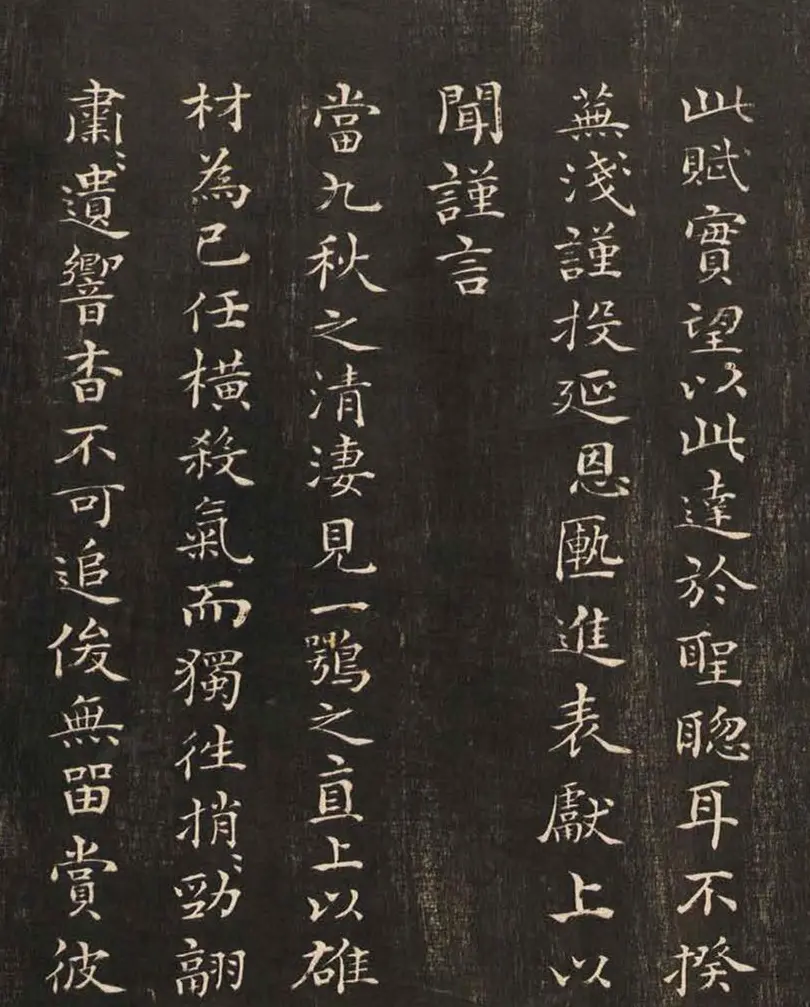 此賦實望以此達於聖聦耳不揆
蕪淺謹投延恩匭進表獻上以
聞謹言
當九秋之清淒見一鶚之直上以雄
材為己任橫殺氣而獨往捎〻勁翮
肅〻遺響杳不可追俊無留賞彼